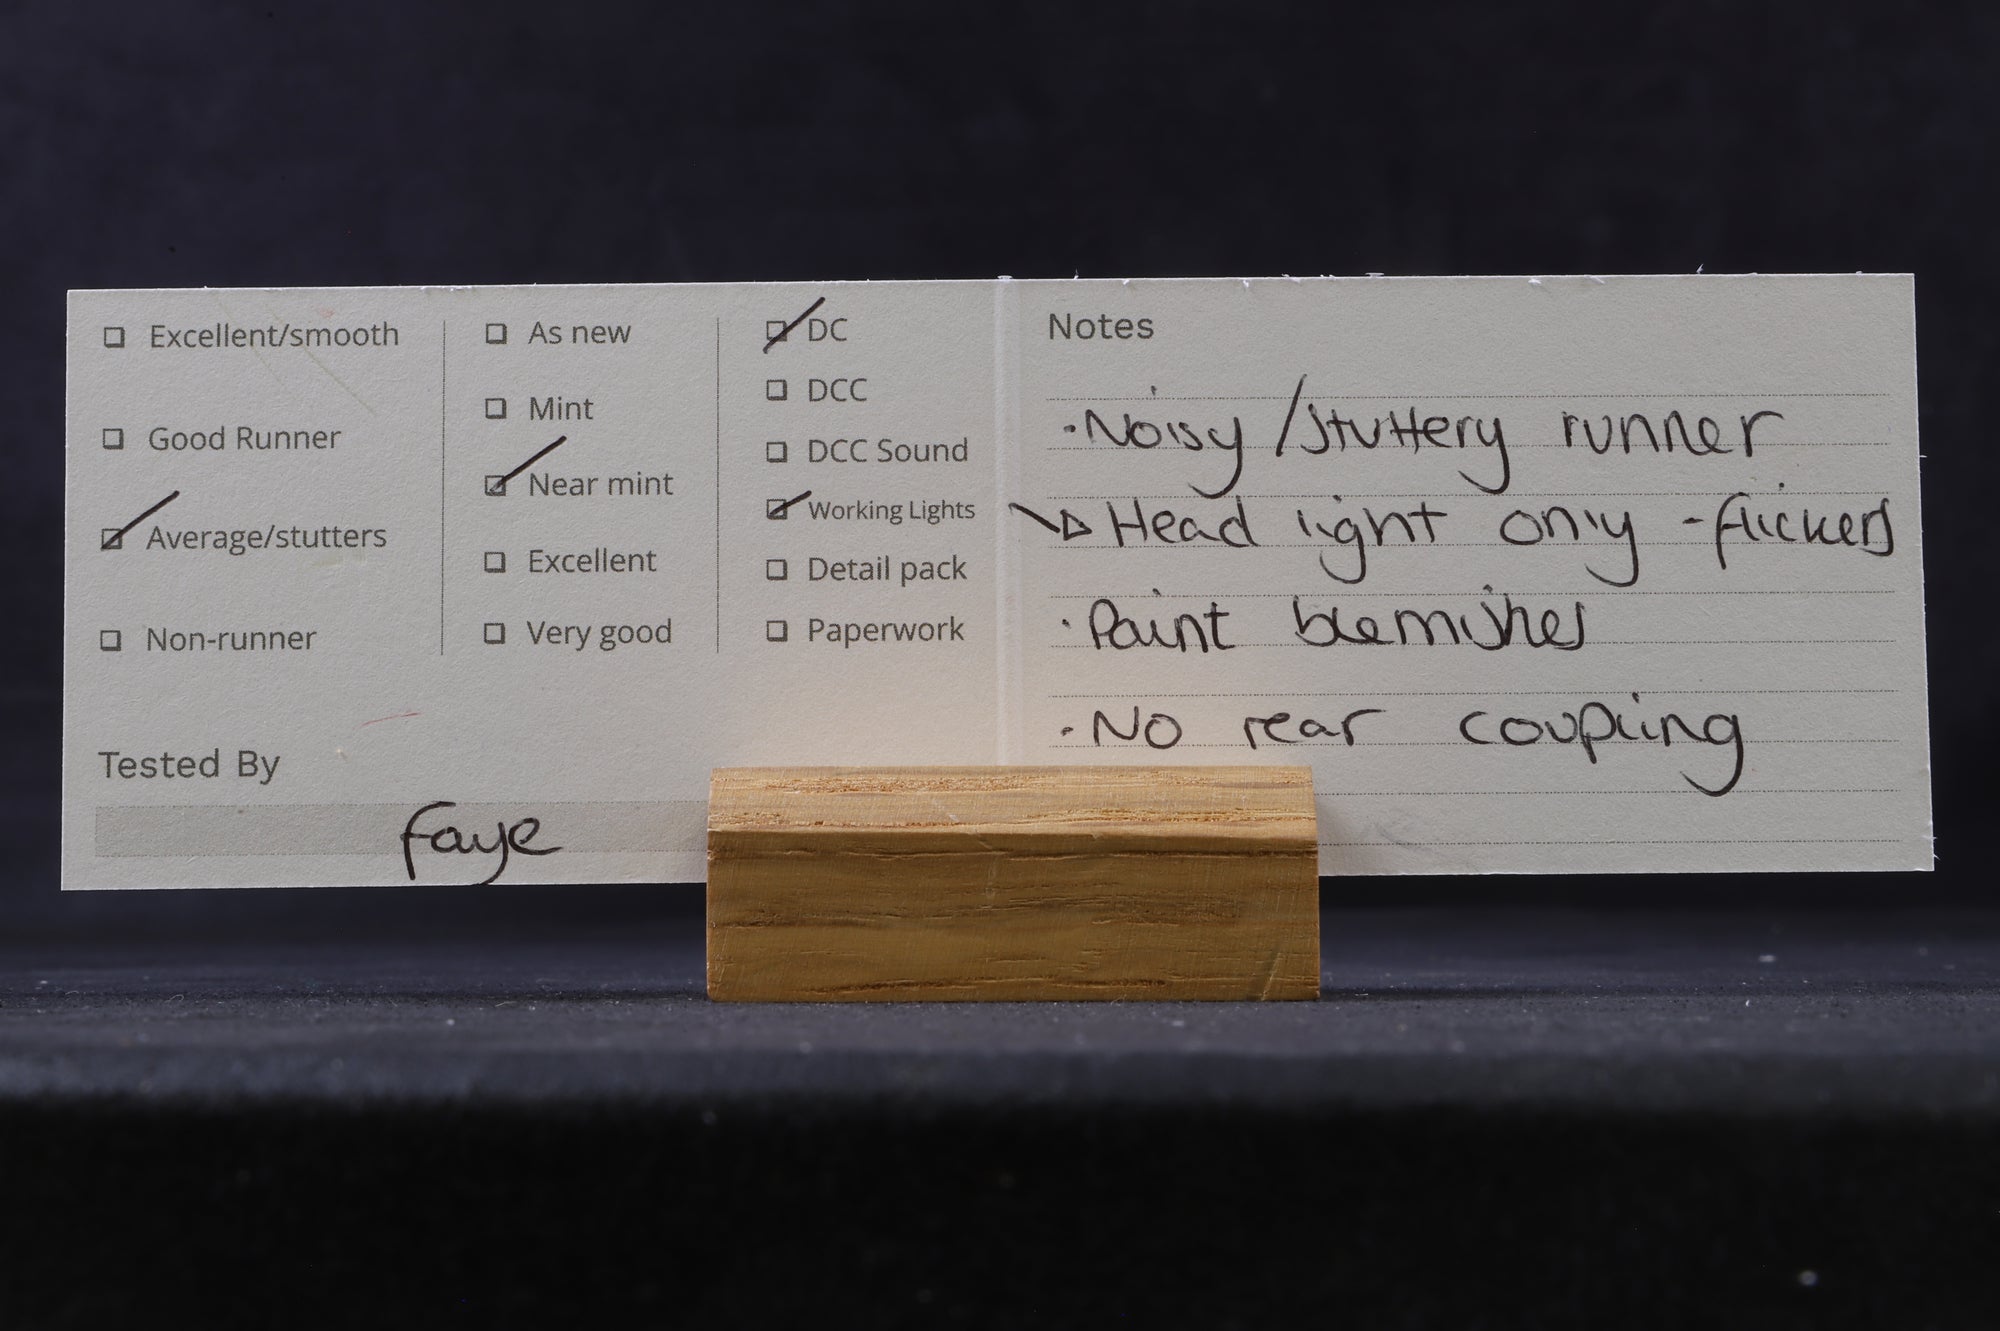 Excellent/smooth
Good Runner
Average/stutters
Non-runner
As new
Mint
Near mint
Excellent
Very good
DC
DCC
DCC Sound
Working Lights
Detail pack
Paperwork
Tested By
faye
Notes
·Noisy/stuttery runner
Head light only - flickers
·Paint blemishes
·No rear coupling